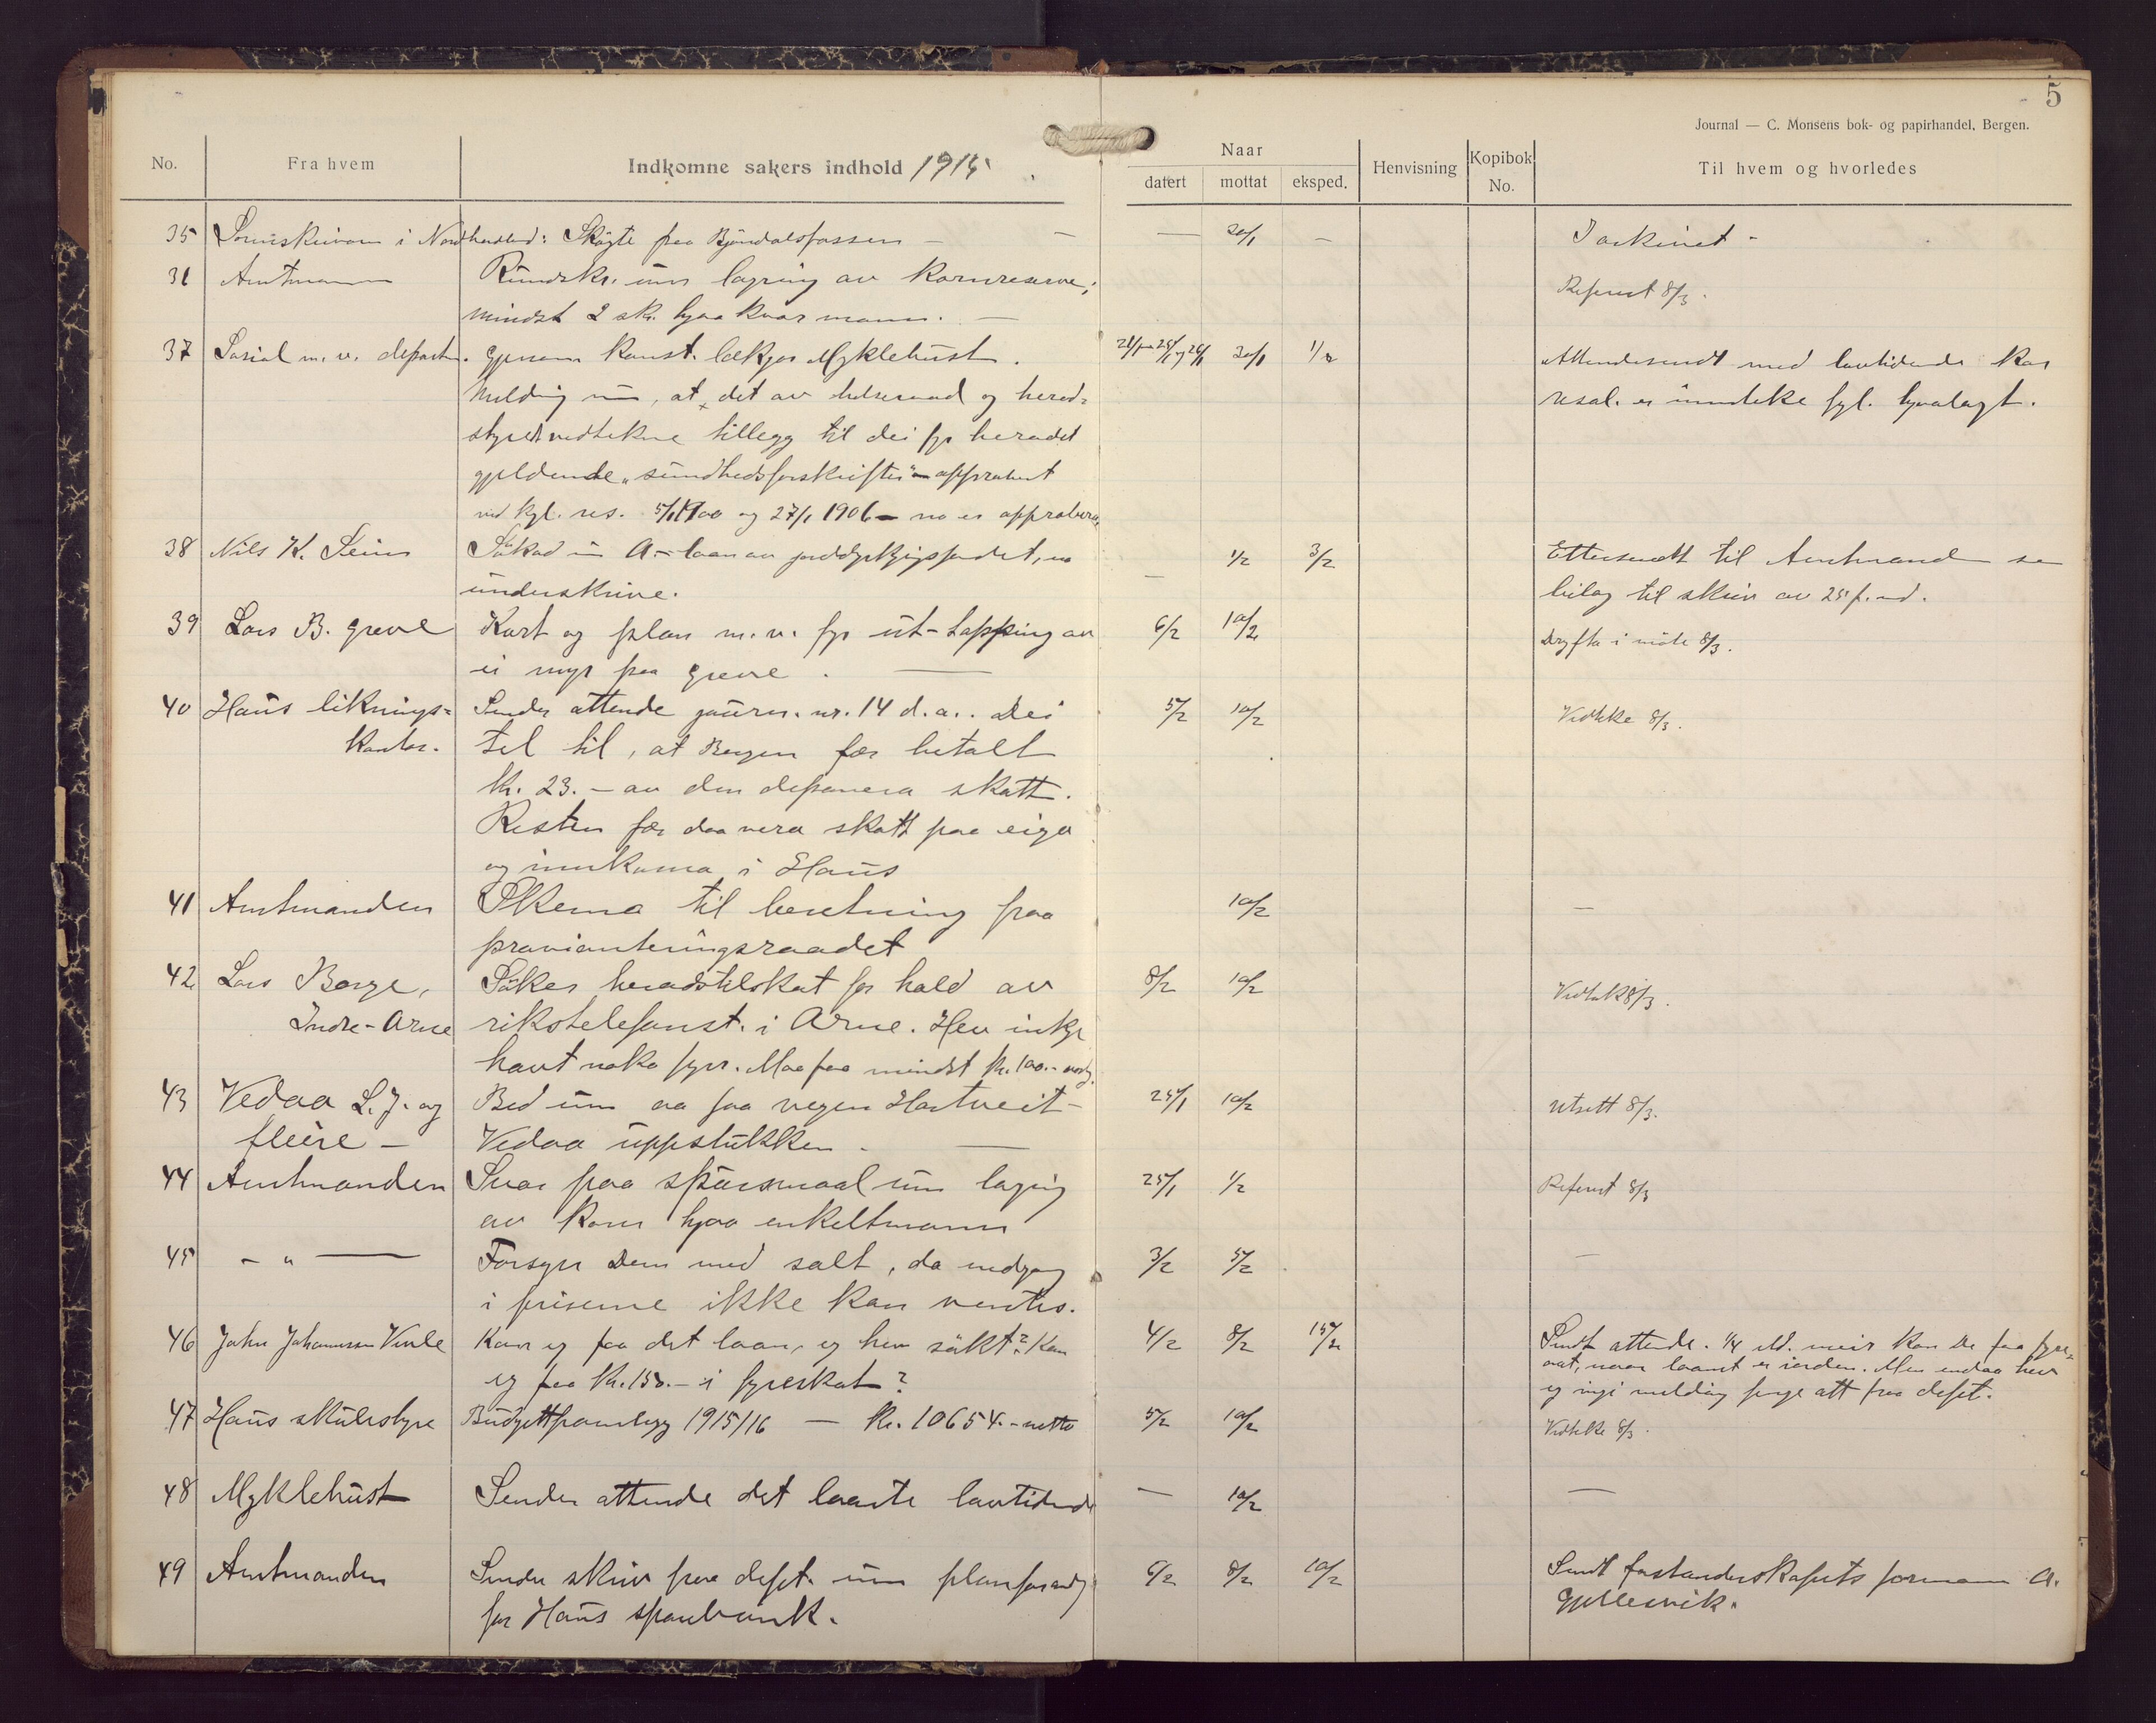 5
Journal — C. Monsens bok- og papirhandel, Bergen.
No. Fra hvem Indkomne sakers indhold 1915 Naar Henvisning Kopibok No. Til hvem og hvorledes
datert mottat eksped.
35 Sorenskrivaren i Nordhordland: Skøyte paa Bjøndalsfossen — — 30/1 — I arkivet -
36 Amtmann Rundskr. um lagring av kornreserve; Referert 8/3.
mindst 2 sk. hjaa kvar mann. —
37 Sosial m. v. departm. gjenom konst. lækjar Myklebust. 30/1 1/2 Attendesendt med lovtidende Kgl.
Melding um, at det av helseraad og herads- resol. er innteke fyl. hjaalagt.
styret vedtekne tillegg til dei fyr heradet
gjeldende "sundhedsforskrifter" approbert
ved kgl. res. 5/1 1900 og 27/1 1906 — no er approbera.
38 Nils K. Seim Søknad um A-laan av jorddyrkingsfondet, — 1/2 3/2 Ettersendt til Amtmand
underskrive. bilag til skriv av 25. f. md.
39 Lars B. Greve Kart og plan m. v. fyr ut-tapping av 6/2 10/2 Dryfta i møte 8/3.
ei myr paa Greve. —
40 Haus liknings- Sender attende journ. nr. 14 d. a.. Dei 5/2 10/2 Vedteke 8/3.
kontor. tel til, at Bergen fær betalt
kr. 23.- av den deponera skatt.
Resten fær daa vera skatt paa eiga
og innkoma i Haus
41 Amtmanden Skema til beretning fraa 10/2 —
provianteringsraadet
42 Lars Borge, Søker heradstilskot for hald av 8/2 10/2 Vedtak 8/3.
Indre-Arne rikstelefonst. i Arne. Hev inkje
havt noko fyrr. Maa faa mindst kr. 100.-
43 Vedaa L. J. og Bed um aa faa vegen Hartveit- 25/1 10/2 Utsett 8/3.
fleire — Vedaa uppstukken. —
44 Amtmanden Svar paa spørsmaal um lagring 25/1 1/2 Referert 8/3
av korn hjaa enkeltmann
45 - " — Forsyn Dem med salt, da nedgang 3/2 5/2 —
i priserne ikke kan ventes.
46 John Johannessen Vinle Kann eg faa det laan, eg hev søkt? Kan 4/2 8/2 15/2 Sendt attende. 1/4 Md. meir kan De faa fyre-
eg faa kr. 150.- i fyreskot? aat, naar laanet er iorden. Men endaa hev
eg ingi melding fenge att fraa dept.
47 Haus skulestyre Budgettframlegg 1915/16 — kr. 10654.- netto 5/2 10/2 Vedteke 8/3.
48 Myklebust Sender attende det laante lovtidende — 10/2 —
49 Amtmanden Sender skriv fraa dept. um planforandr. 6/2 8/2 10/2 Sendt forstanderskapets formann A.
for Haus sparebank. Gjellesvik.